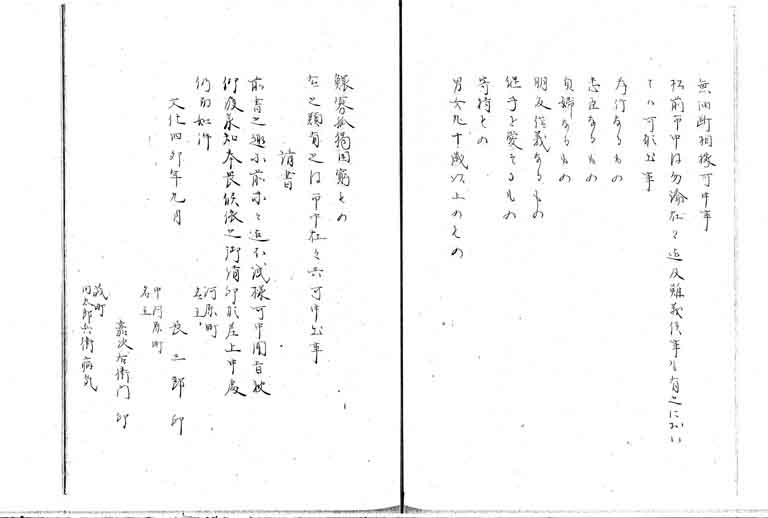 無油断相様可申事
松前市中は勿論在々迄及難義候事も有之におい
ては可申出事
孝行なるもの
忠臣なるもの
貞婦なるもの
朋友信義あるもの
継子を愛するもの
寄特もの
男女九十歳以上のもの
鰥寡孤独困窮もの
右之類有之は市中在々共可申出事
請書
前書之趣小前末々迄不洩様可申聞旨被
仰渡承知奉畏候依之御請印形差上申処
仍而如件
文化四卯年九月
河原町
名主
長三郎 印
中河原町
名主
嘉次右衛門 印
蔵町
同太郎兵衛病気